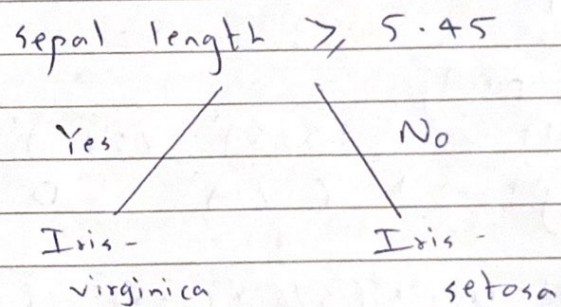 sepal length ⩾ 5.45
Yes No
Iris- Iris-
virginica setosa